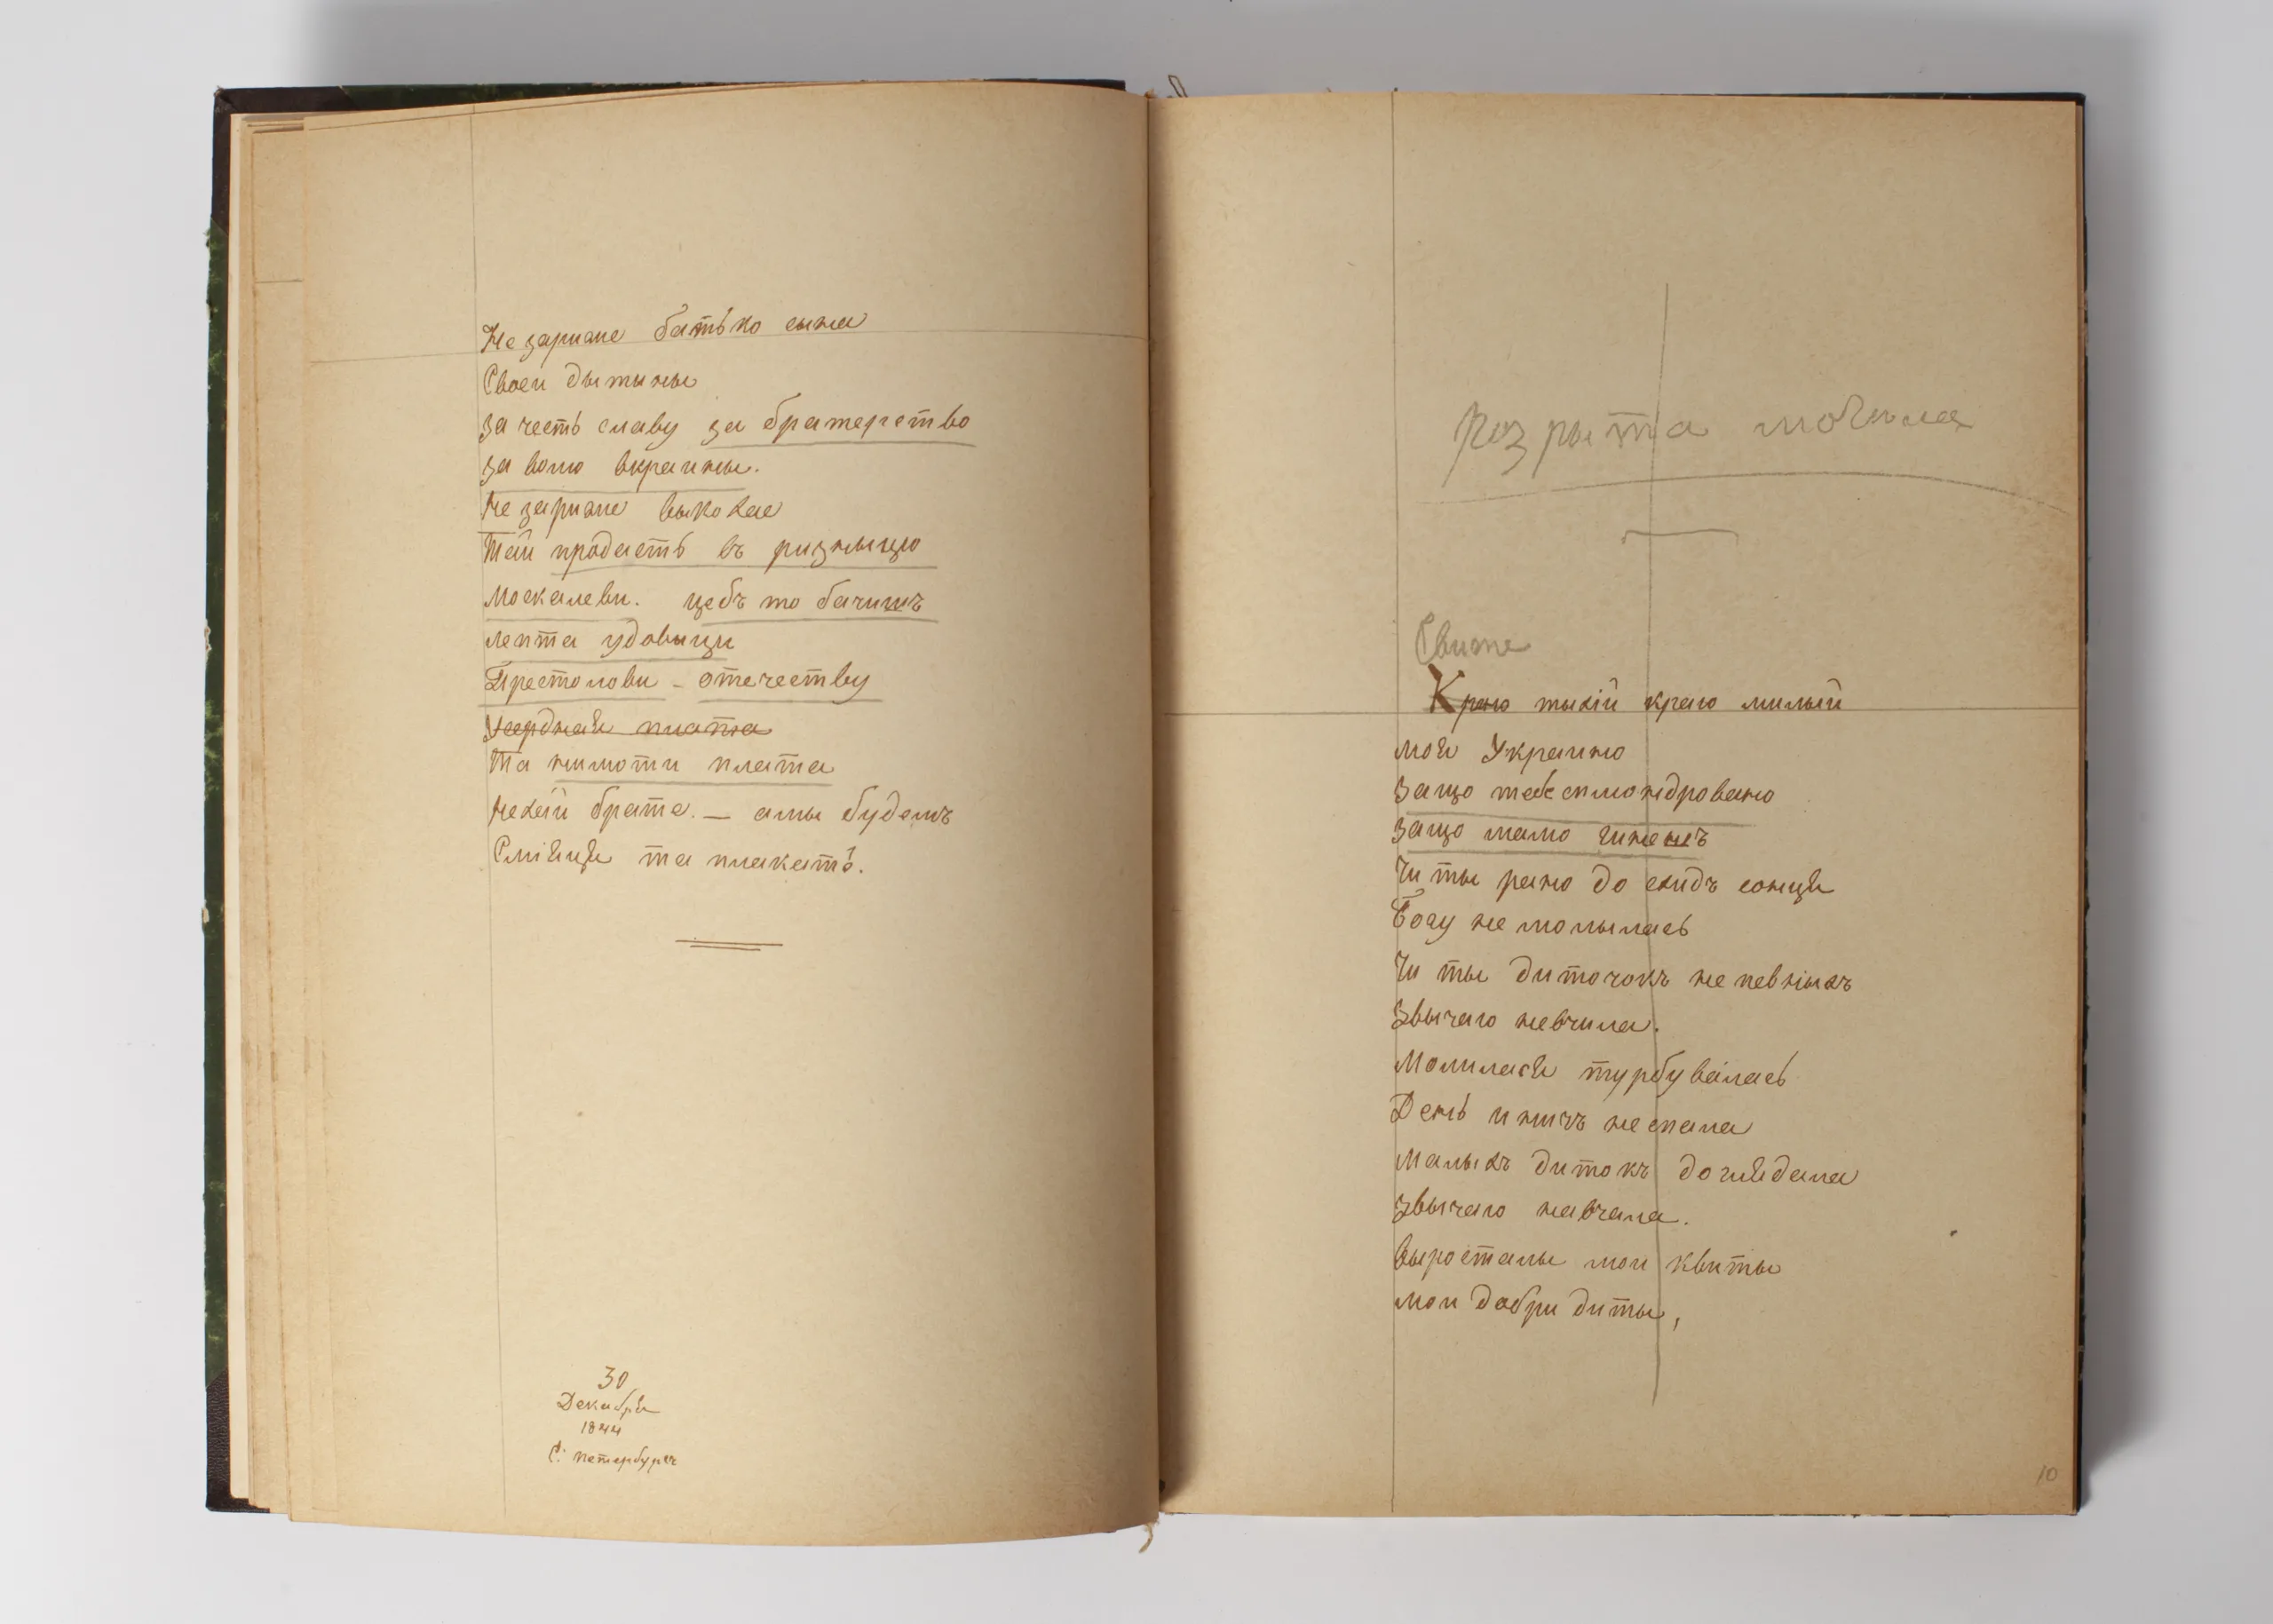 Не зариже батько сына
Своеи дытыны
За честь славу за братерство
За волю вкраины.
Не зариже выкохае
Тай продасть въ ризныцю
Москалеви. цебъ то бачишъ
лепта удовыци
Престолови – отечеству
Усердная плата
Та нимоти плата
Нехай брате. — амы будемъ
Сміяця та плакать.
30
Декабря
1844
С: петербургъ
Розрыта могыла
Свите
Краю тыхій краю милый
моя Украино
Защо тебе сплюндровано
Защо мамо гинешъ
Чи ты рано до схидъ сонця
Богу не молылась
Чи ты диточокъ непевныхъ
Звычаю невчила.
Молилася турбувалась
День и ничъ не спала
Малыхъ дитокъ доглядала
Звычаю навчала.
Выросталы мои квиты
Мои добри диты,
10